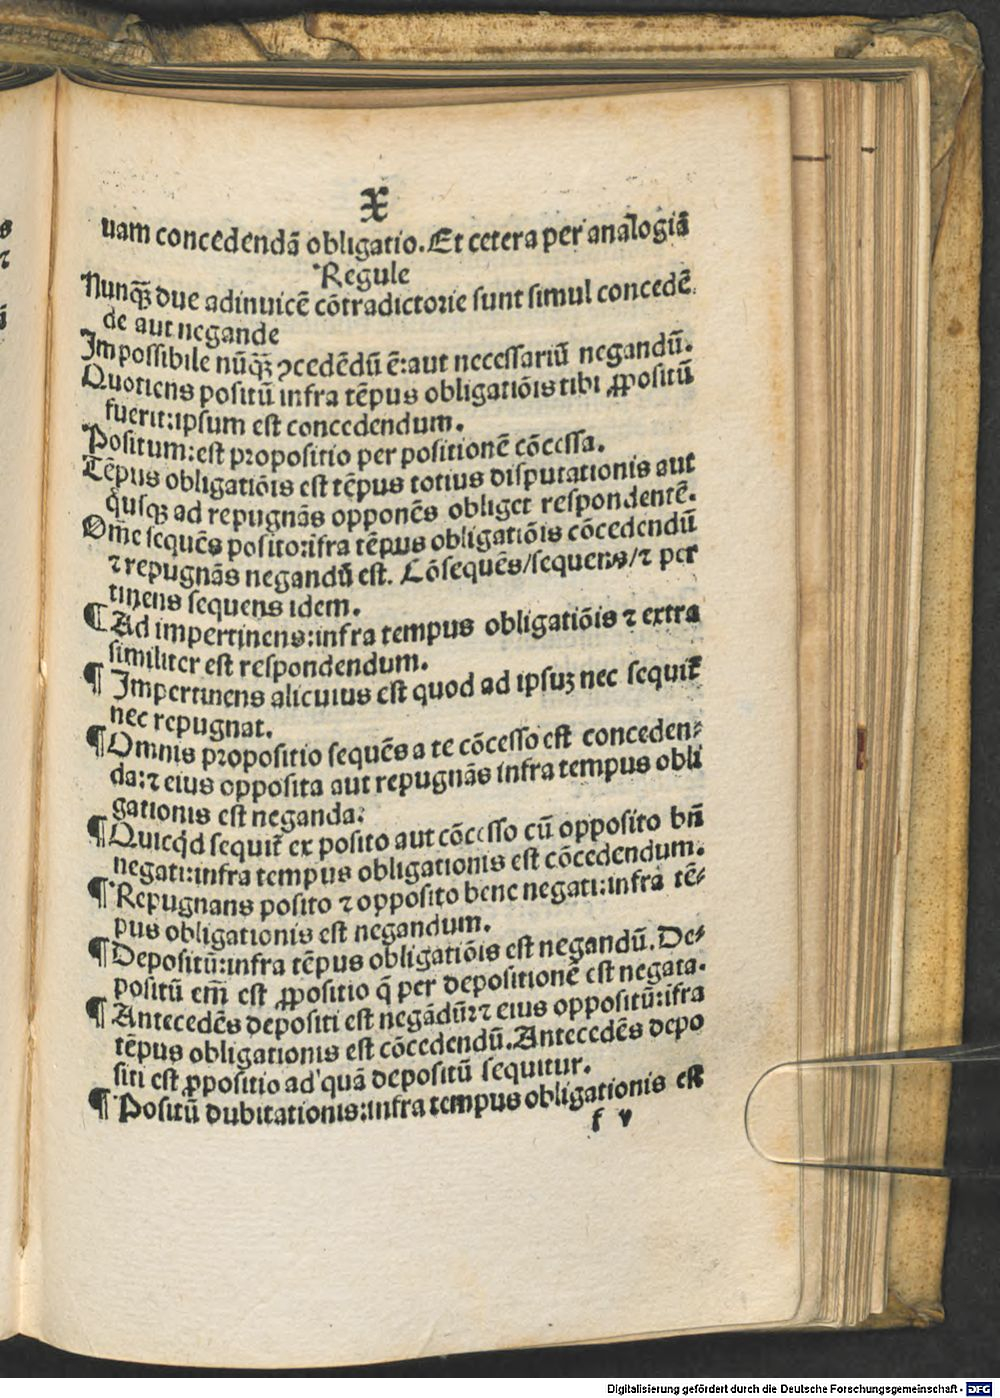 X
uam concedendā obligatio. Et cetera per analogiā
Regule
Nunqꝫ due adinuicē cōtradictorie sunt simul concedē
de aut negande
Impossibile nūqꝫ ꝯcedēdū ē: aut necessariū negandū.
Quotiens positū infra tēpus obligatiōis tibi ꝓpositū
fuerit: ipsum est concedendum.
Positum: est propositio per positionē cōcessa.
Tēpus obligatiōis est tēpus totius disputationis aut
qͥusqꝫ ad repugnās opponēs obliget respondentē.
Om̄e sequēs posito: ifra tēpus obligatiōis cōcedendū
⁊ repugnās negandū est. Cōsequēs/ sequens/ ⁊ per
tinens sequens idem.
¶ Ad impertinens: infra tempus obligatiōis ⁊ extra
similiter est respondendum.
¶ Impertinens alicuius est quod ad ipsuꝫ nec sequit᷑
nec repugnat.
¶ Omnis propositio sequēs a te cōcesso est conceden⸗
da: ⁊ eius opposita aut repugnās infra tempus obli
gationis est neganda:
¶ Quicqͥd sequit᷑ ex posito aut cōcesso cū opposito bn̄
negati: infra tempus obligationis est cōcedendum.
¶ Repugnans posito ⁊ opposito bene negati: infra tē⸗
pus obligationis est negandum.
¶ Depositū: infra tēpus obligatiōis est negandū. De⸗
positū em̄ est ꝓpositio q̄ per depositionē est negata.
¶ Antecedēs depositi est negādū: ⁊ eius oppositū: ifra
tēpus obligationis est cōcedendū. Antecedēs depo
siti est ꝓpositio ad quā depositū sequitur.
¶ Positū dubitationis: infra tempus obligationis est
f v
Digitalisierung gefördert durch die Deutsche Forschungsgemeinschaft - DFG